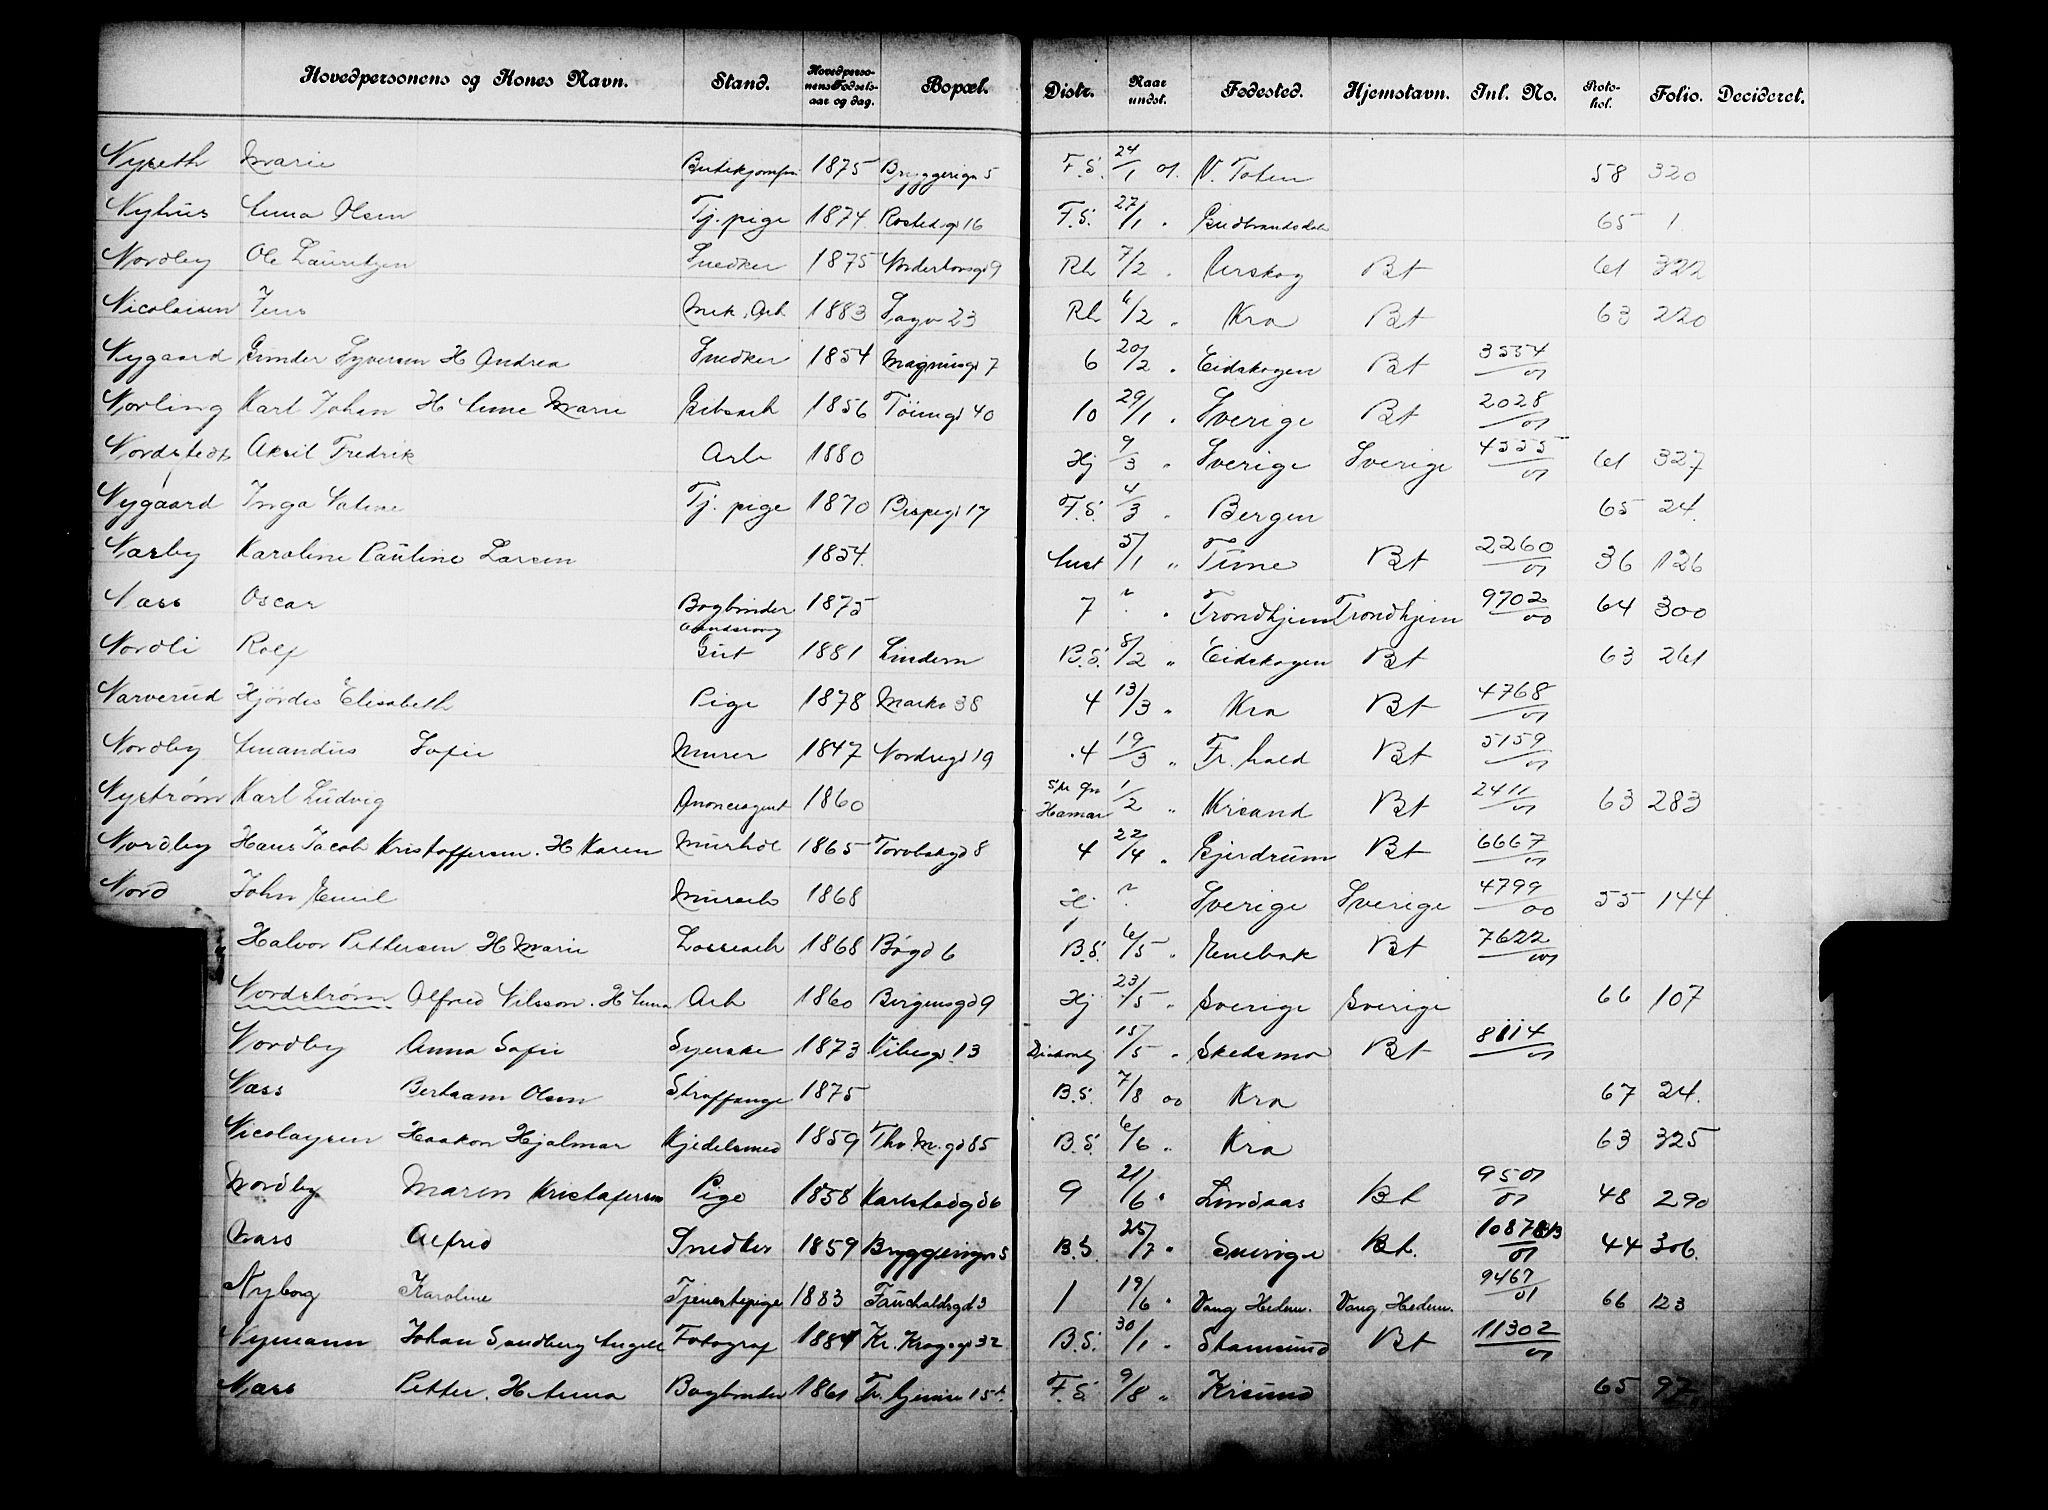 Hovedpersonens og Kones Navn. Stand. Hovedpersonens Fødselsaar og dag. Bopæl. Distr. Naar undst. Fødested. Hjemstavn. Inl. No. Protokol. Folio. Decideret.
Nyseth Marie 1875 Bryggerigd 5 F.S. 24/1 01. V. Toten 58 320
Nyhus Anna Olsen Tj. pige 1874 Rostedgd 16 F.S. 27/1 " Gudbrandsdalen 65 1.
Nordby Ole Lauritzen Snedker 1875 Norderhovsgd 9 Rh 7/2 " Urskog Bt 61 322
Nicolaisen Jens Mek. Arb 1883 Sagv 23 Rh 6/2 " Kra Bt 63 220
Nygaard Gunder Syversen H Andrea Snedker 1854 Magnusgd 7 6 20/2 " Eidskogen Bt 3554/01
Norling Karl Johan H Anne Marie Gibsarb 1856 Töiengd 40 10 29/1 " Sverige Bt 2028/01
Nordstedt Aksil Fredrik Arb 1880 Hj 9/3 " Sverige Sverige 4555/01 61 327
Nygaard Inga Tj. pige 1870 Bispegd 17 F.S. 4/3 " Bergen 65 24.
Narby Karoline Pauline Larsen 1854. 5/1 " Tune Bt 2260/01 36 126
Næss Oscar Bogbinder 1875 7 " Trondhjem Trondhjem 9702/00 64 300
Nordli Rolf Aandssvag Gut 1881 Lindern B.S. 8/2 " Eidskogen Bt 63 261
Narverud Hjördis Elisabeth Pige 1878 Markv 38 4 13/3 " Kra Bt 4768/01
Nordby Amandus Sofie Murer 1847 Nordregd 19 4 19/3 " Fr. hald Bt 5159/01
Nyström Karl Ludvig Anonceagent 1860 Hamar 1/2 " Krisand Bt 2411/01 63 283
Nordby Hans Jacob Kristoffersen. H Karen 1865 8 4 22/4 " Gjerdrum Bt 6667/01
Nord John Emil Murarb 1868 Hj. Sverige Sverige 4799/00 55 144
Halvor Pettersen H Marie Lossearb 1868 Bøgd 6 B.S. 6/5 " Enebak Bt 7622/01
Nordstrøm Alfred Nilsson. H Anna Arb 1860 Bergensgd 9 Hj 23/5 " Sverige Sverige 66 107
Nordby Anna Sofie Syerske 1873 Vibesgd 13 15/5 " Skedsmo Bt 8114/01
Næss Bertram Olsen Straffange 1875 B.S. 7/8 00 Kra 67 24.
Nicolaysen Haakon Hjalmar Kjedelsmed 1859 Thv. M. gd 85 B.S. 6/6 " Kra 63 325
Nordby Maren Kristofersen Pige 1858 Karlstadgd 6 9 21/6 " Lindaas Bt 9501/01 48 290
Næss Alfred Snedker 1859 Bryggerigd 5 B.S. 25/7 " Sverige Bt. 44 306.
Nyborg Karoline Tjenestepige 1883 Fauchaldsgd 3 1 19/6 " Vang Hedem. Vang Hedem. 9467/01 66 123
Nymann Johan Sandberg Fotograf 1884 Kr. Krogsgd 32 B.S. 30/1 " Stamsund Bt 11302/01
Næss Petter. H Anna Bogbinder 1861 F.S. 9/8 " Krisund 65 97.